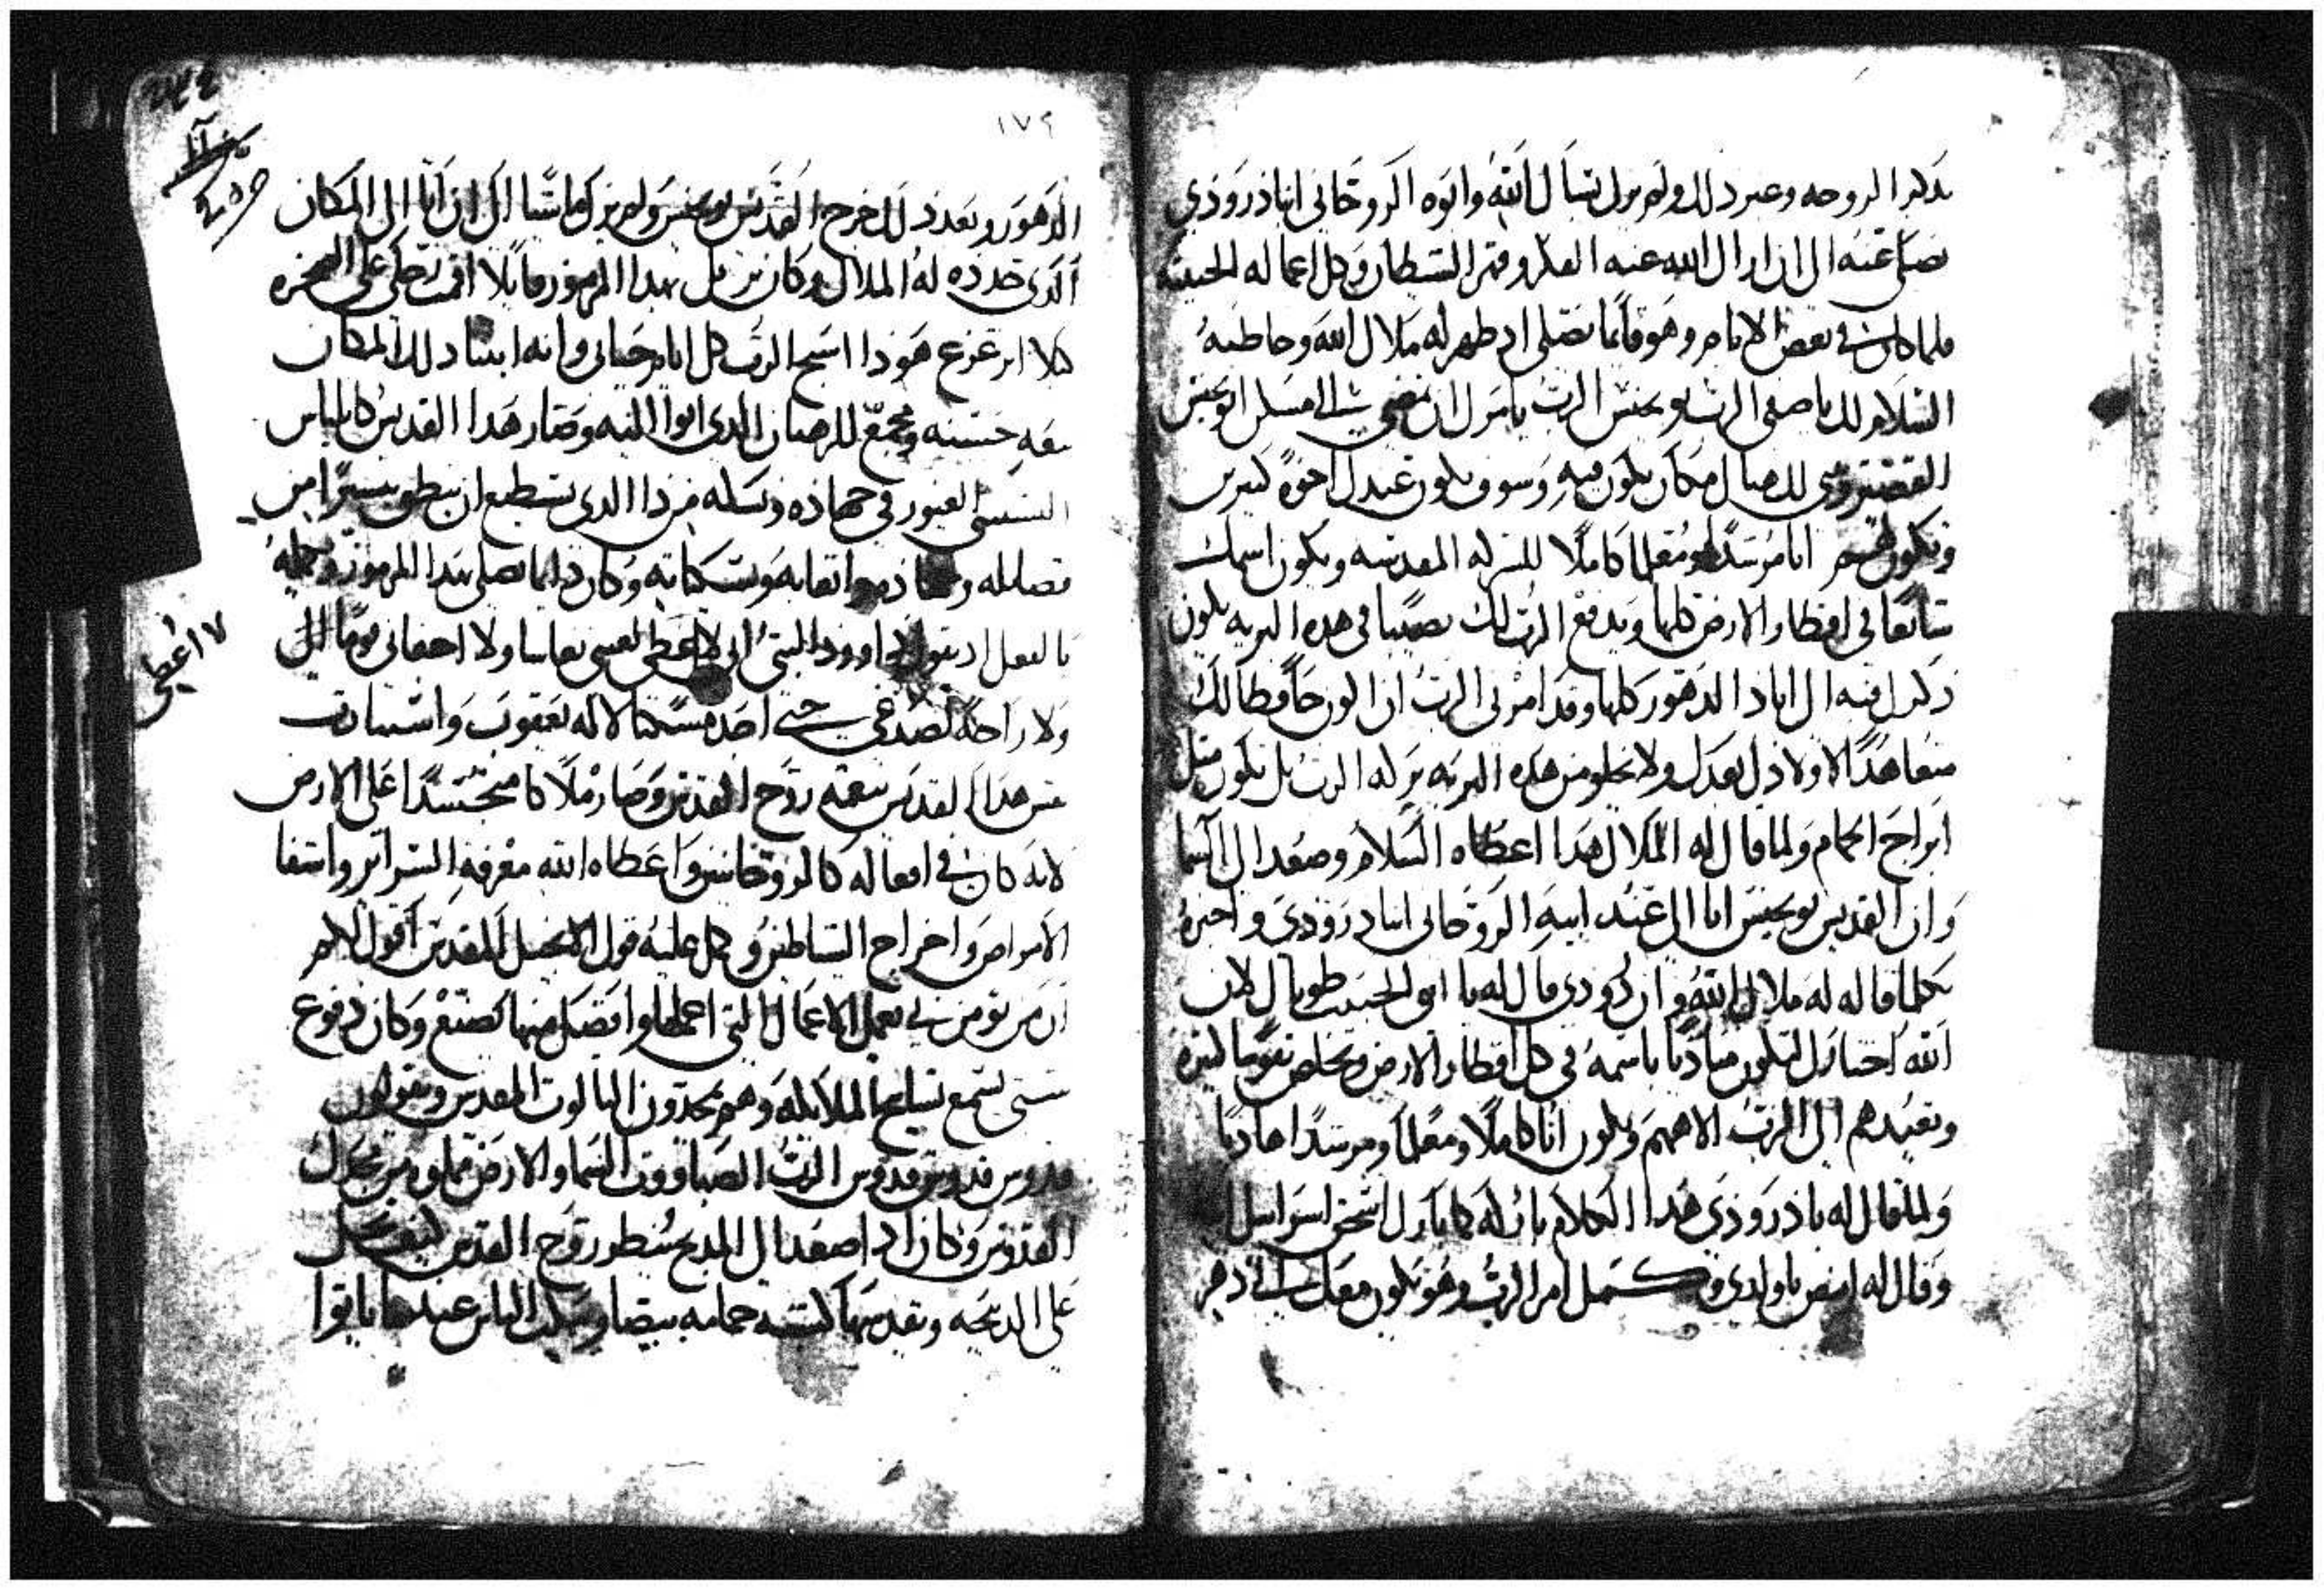 بذكر الزوجه وعند ذلك ولم يزل يسأل الله وابوه الروحانى انبا دروذي
يصلى عنه الى ان ازال الله عنه الفكر وقهر الشيطان وكل اعماله الخبيثه
فلما كان في بعض الايام وهو قائما يصلى اذ ظهر له ملاك الله وخاطبه
السلام لك يا صفى الرب يوحنس الرب يامرك ان تمضي الى مسكن ابو يحنس
القصير وتبني لك هناك مكان تكون فيه وسوف يكون عندك اخوة كثيرين
وتكون لهم ابا مرشدا ومعلما كاملا للسيره المقدسه ويكون اسمك
شايعا في اقطار الارض كلها ويدفع الرب لك نصيبا في هذه البريه يكون
ذكرك فيه الى اباد الدهور كلها وقد امرني الرب ان اكون حافظا لك
متعاهدا لاولادك بعدك ولا تخلو من هذه البريه بركه الرب بل تكون مثل
ابراج الحمام ولما قال له الملاك هذا اعطاه السلام وصعد الى السما
وان القديس يوحنس اتا الى عند ابيه الروحانى انبا دروذي واخبره
بكلما قاله له ملاك الله وان دروذي قال له يا ابني الحبيب طوباك لان
الله اختارك لتكون مناديا باسمه في كل اقطار الارض وتخلص نفوسا كثيره
وتعيدهم الى الرب الاههم وتكون ابا كاملا ومعلما ومرشدا هاديا
ولما قال له انبا دروذي هذا الكلام باركه كما بارك اسحق اسرايل
وقال له امض يا ولدي وكمل امر الرب وهو يكون معك الى دهر
١٧٩
الدهور وبعد ذلك خرج القديس يوحنس ولم يزل ماشيا الى ان اتا الى المكان
الذى حدده له الملاك وكان يرتل بهذا المزمور قايلا اقمت رجلى على الصخره
كلا اتزعزع هوذا اسبح الرب كل ايام حياتى وانه ابتنا ذلك المكان
بيعه حسنه ومجمع للرهبان الذى اتوا اليه وصار هذا القديس كايلياس
التسبيتى الغيور في جهاده ونسكه من ذا الذى يستطيع ان ينطق بيسيرا من
فضايله وجهاده واتعابه ونسكياته وكان دايما يصلى بهذا المزمور ويعمله
بالفعل اذ يقول داوود النبى انى لا اعطى لعينى نعاسا ولا اجفانى نوما
ولا راحه لصدغى حتى اجد مسكنا لاله يعقوب واستنارت
عين هذا القديس بنعمة روح القدس وصار ملاكا متجسدا على الارض
لانه كان في افعاله كالروحانين واعطاه الله معرفة السراير واشفا
الامراض واخراج الشياطين وكمل عليه قول الانجيل المقدس اقول لكم
ان من يؤمن بي يعمل الاعمال التي اعملها وافضل منها يصنع وكان دفوع
شتى يسمع تسابيح الملايكه وهم يمجدون الثالوث المقدس ويقولون
قدوس قدوس قدوس الرب الصباووت السما والارض مملوه من مجدك
القدوس وكان اذا صعد الى المذبح ينظر روح القدس
على الذبيحه وتقديسها كشبه حمامه بيضا وتملك الناس عندها باقرا
١٧ اعطى